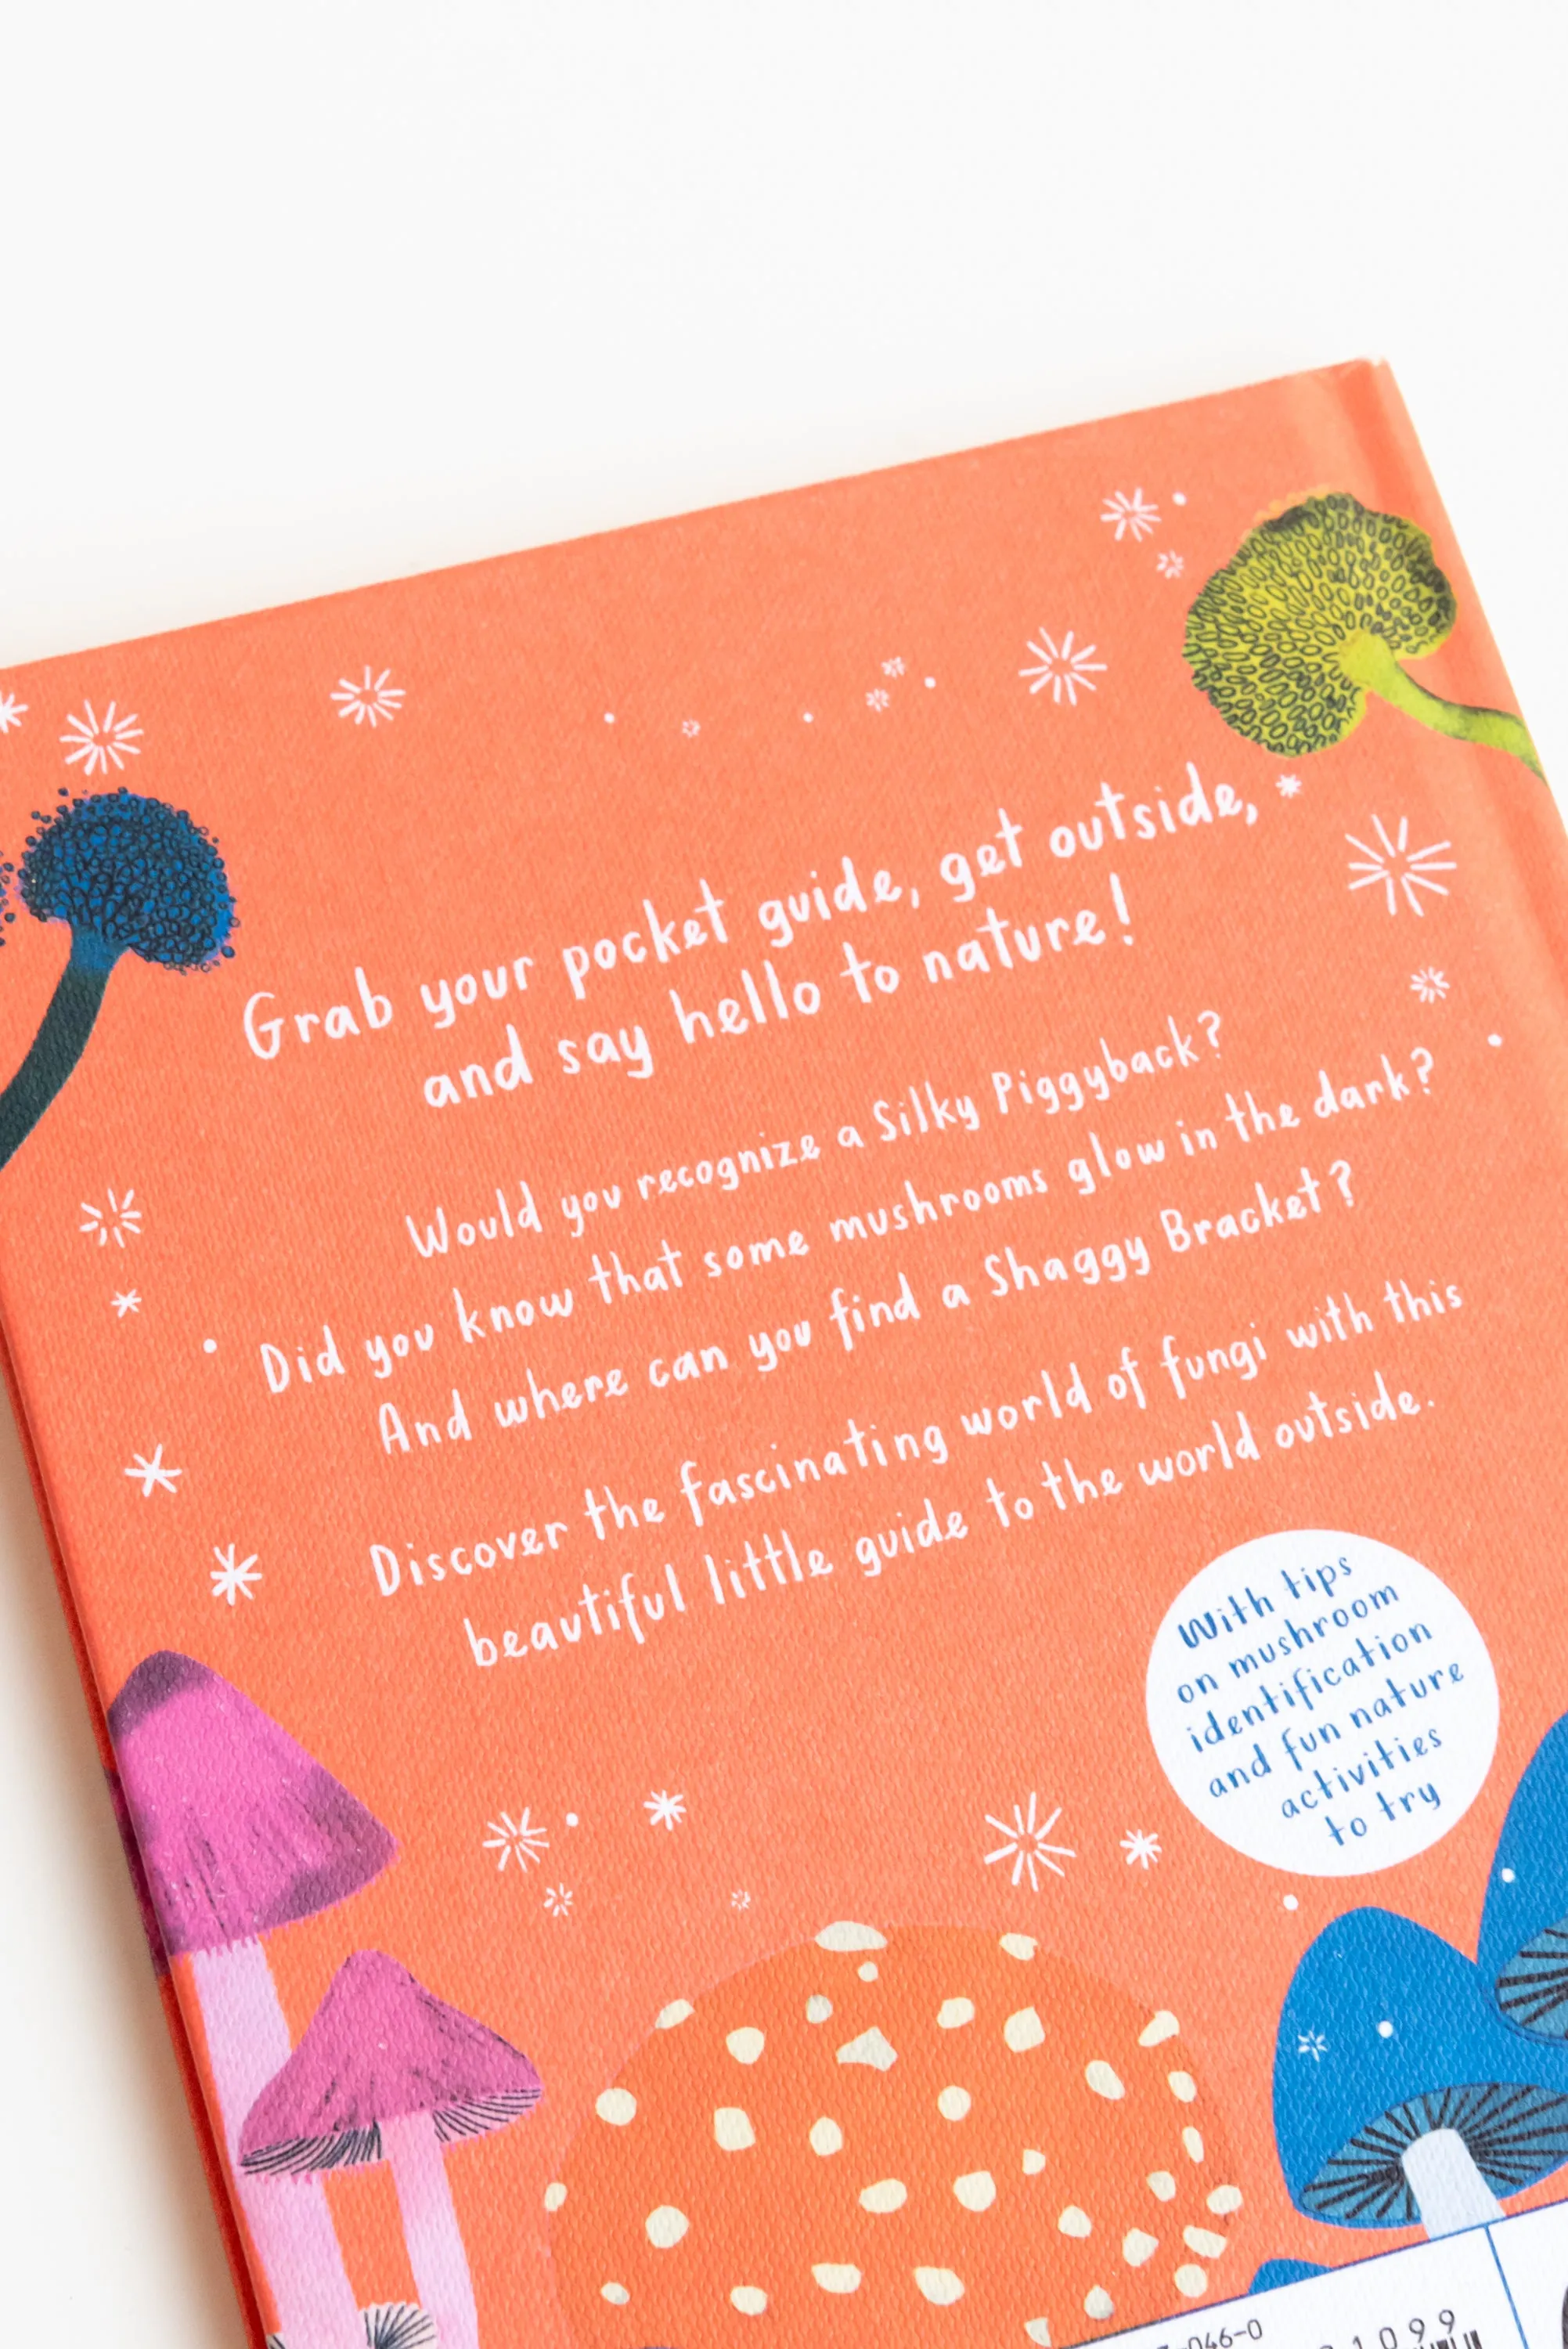 Grab your pocket guide, get outside,
and say hello to nature!
Would you recognize a Silky Piggyback?
Did you know that some mushrooms glow in the dark?
And where can you find a Shaggy Bracket?
Discover the fascinating world of fungi with this
beautiful little guide to the world outside.
With tips
on mushroom
identification
and fun nature
activities
to try
-046-0
1099